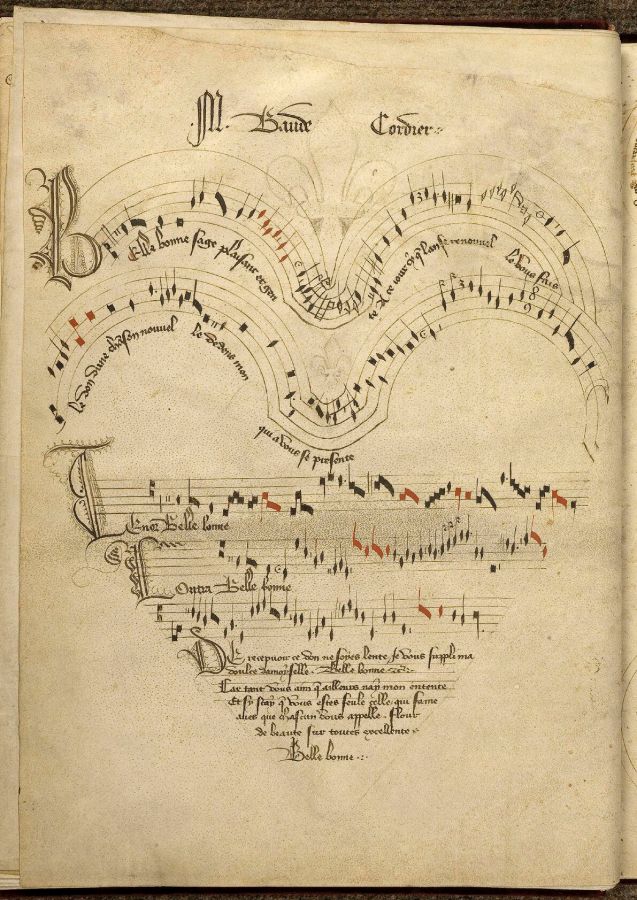 M. Baude Cordier
Belle bonne sage plaisant et gen
te A ce jour q̃ lan se renouvel
le vous fais
le don dune chãson nouvel
le dedens mon
qui a vous se presente
Tenor Belle bonne
Contra Belle bonne
De recepvoir ce don ne soyes lente Je vous suppli ma
doulce damoyselle. Belle bonne
Car tant vous aim q̃ ailleurs nay mon entente
Et sy scay q̃ vous estes seule celle qui fame
aves que chascun vous appelle. flour
de beaute sur toutes excellente
Belle bonne